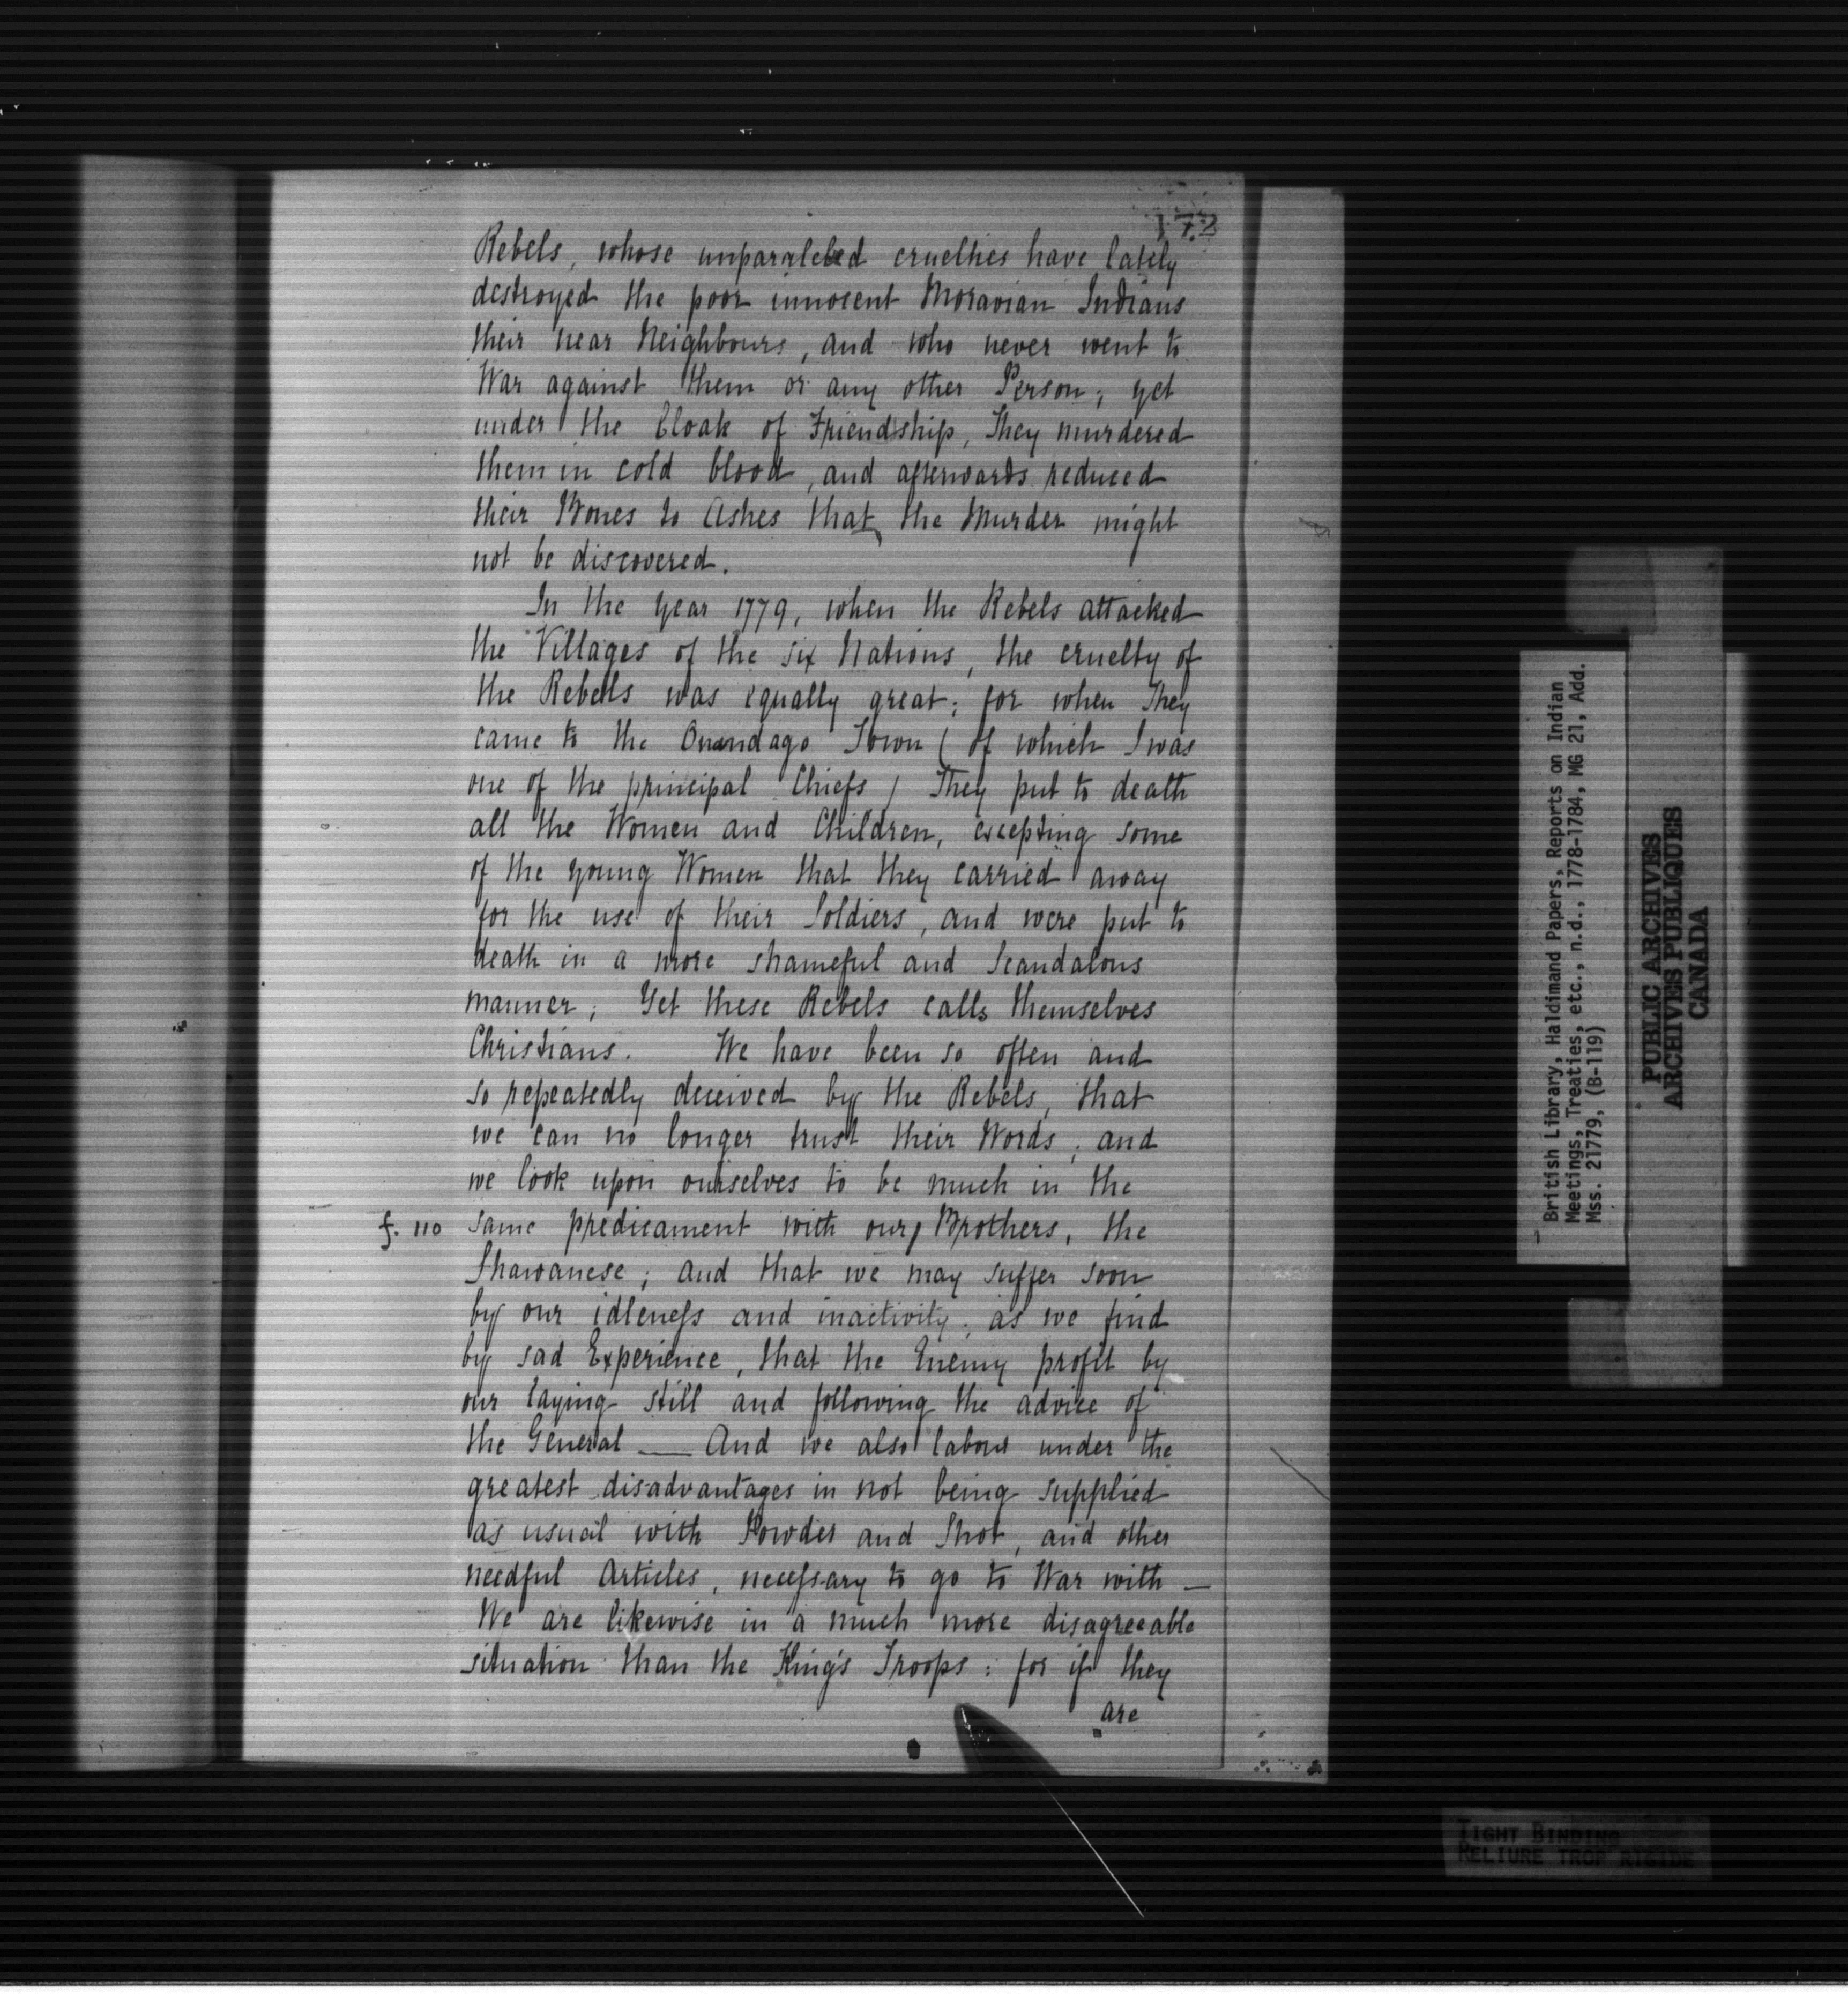 172
Rebels, whose unparalelled cruelties have lately
destroyed the poor innocent Moravian Indians
their near Neighbours, and who never went to
War against them or any other Person; yet
under the Cloak of Friendship, They murdered
them in cold blood, and afterwards reduced
their Bones to Ashes that the Murder might
not be discovered.
In the year 1779, when the Rebels attacked
the Villages of the six Nations, the cruelty of
the Rebels was equally great; for when They
came to the Onondago Town ( of which I was
one of the principal Chiefs ) They put to death
all the Women and Children, excepting some
of the young Women that they carried away
for the use of their Soldiers, and were put to
death in a more shameful and Scandalous
manner; Yet these Rebels calls themselves
Christians. We have been so often and
so repeatedly deceived by the Rebels, that
we can no longer trust their Words; and
we look upon ourselves to be much in the
f. 110 same predicament with our/ Brothers, the
Shawanese; and that we may suffer soon
by our idleness and inactivity; as we find
by sad Experience, that the Enemy profit by
our laying still and following the advice of
the General — And we also labour under the
greatest disadvantages in not being supplied
as usual with Powder and Shot, and other
needful Articles, necessary to go to War with —
We are likewise in a much more disagreeable
situation than the King's Troops: for if they
are
British Library, Haldimand Papers, Reports on Indian
Meetings, Treaties, etc., n.d., 1778-1784, MG 21, Add.
Mss. 21779, (B-119)
PUBLIC ARCHIVES
ARCHIVES PUBLIQUES
CANADA
TIGHT BINDING
RELIURE TROP RIGIDE